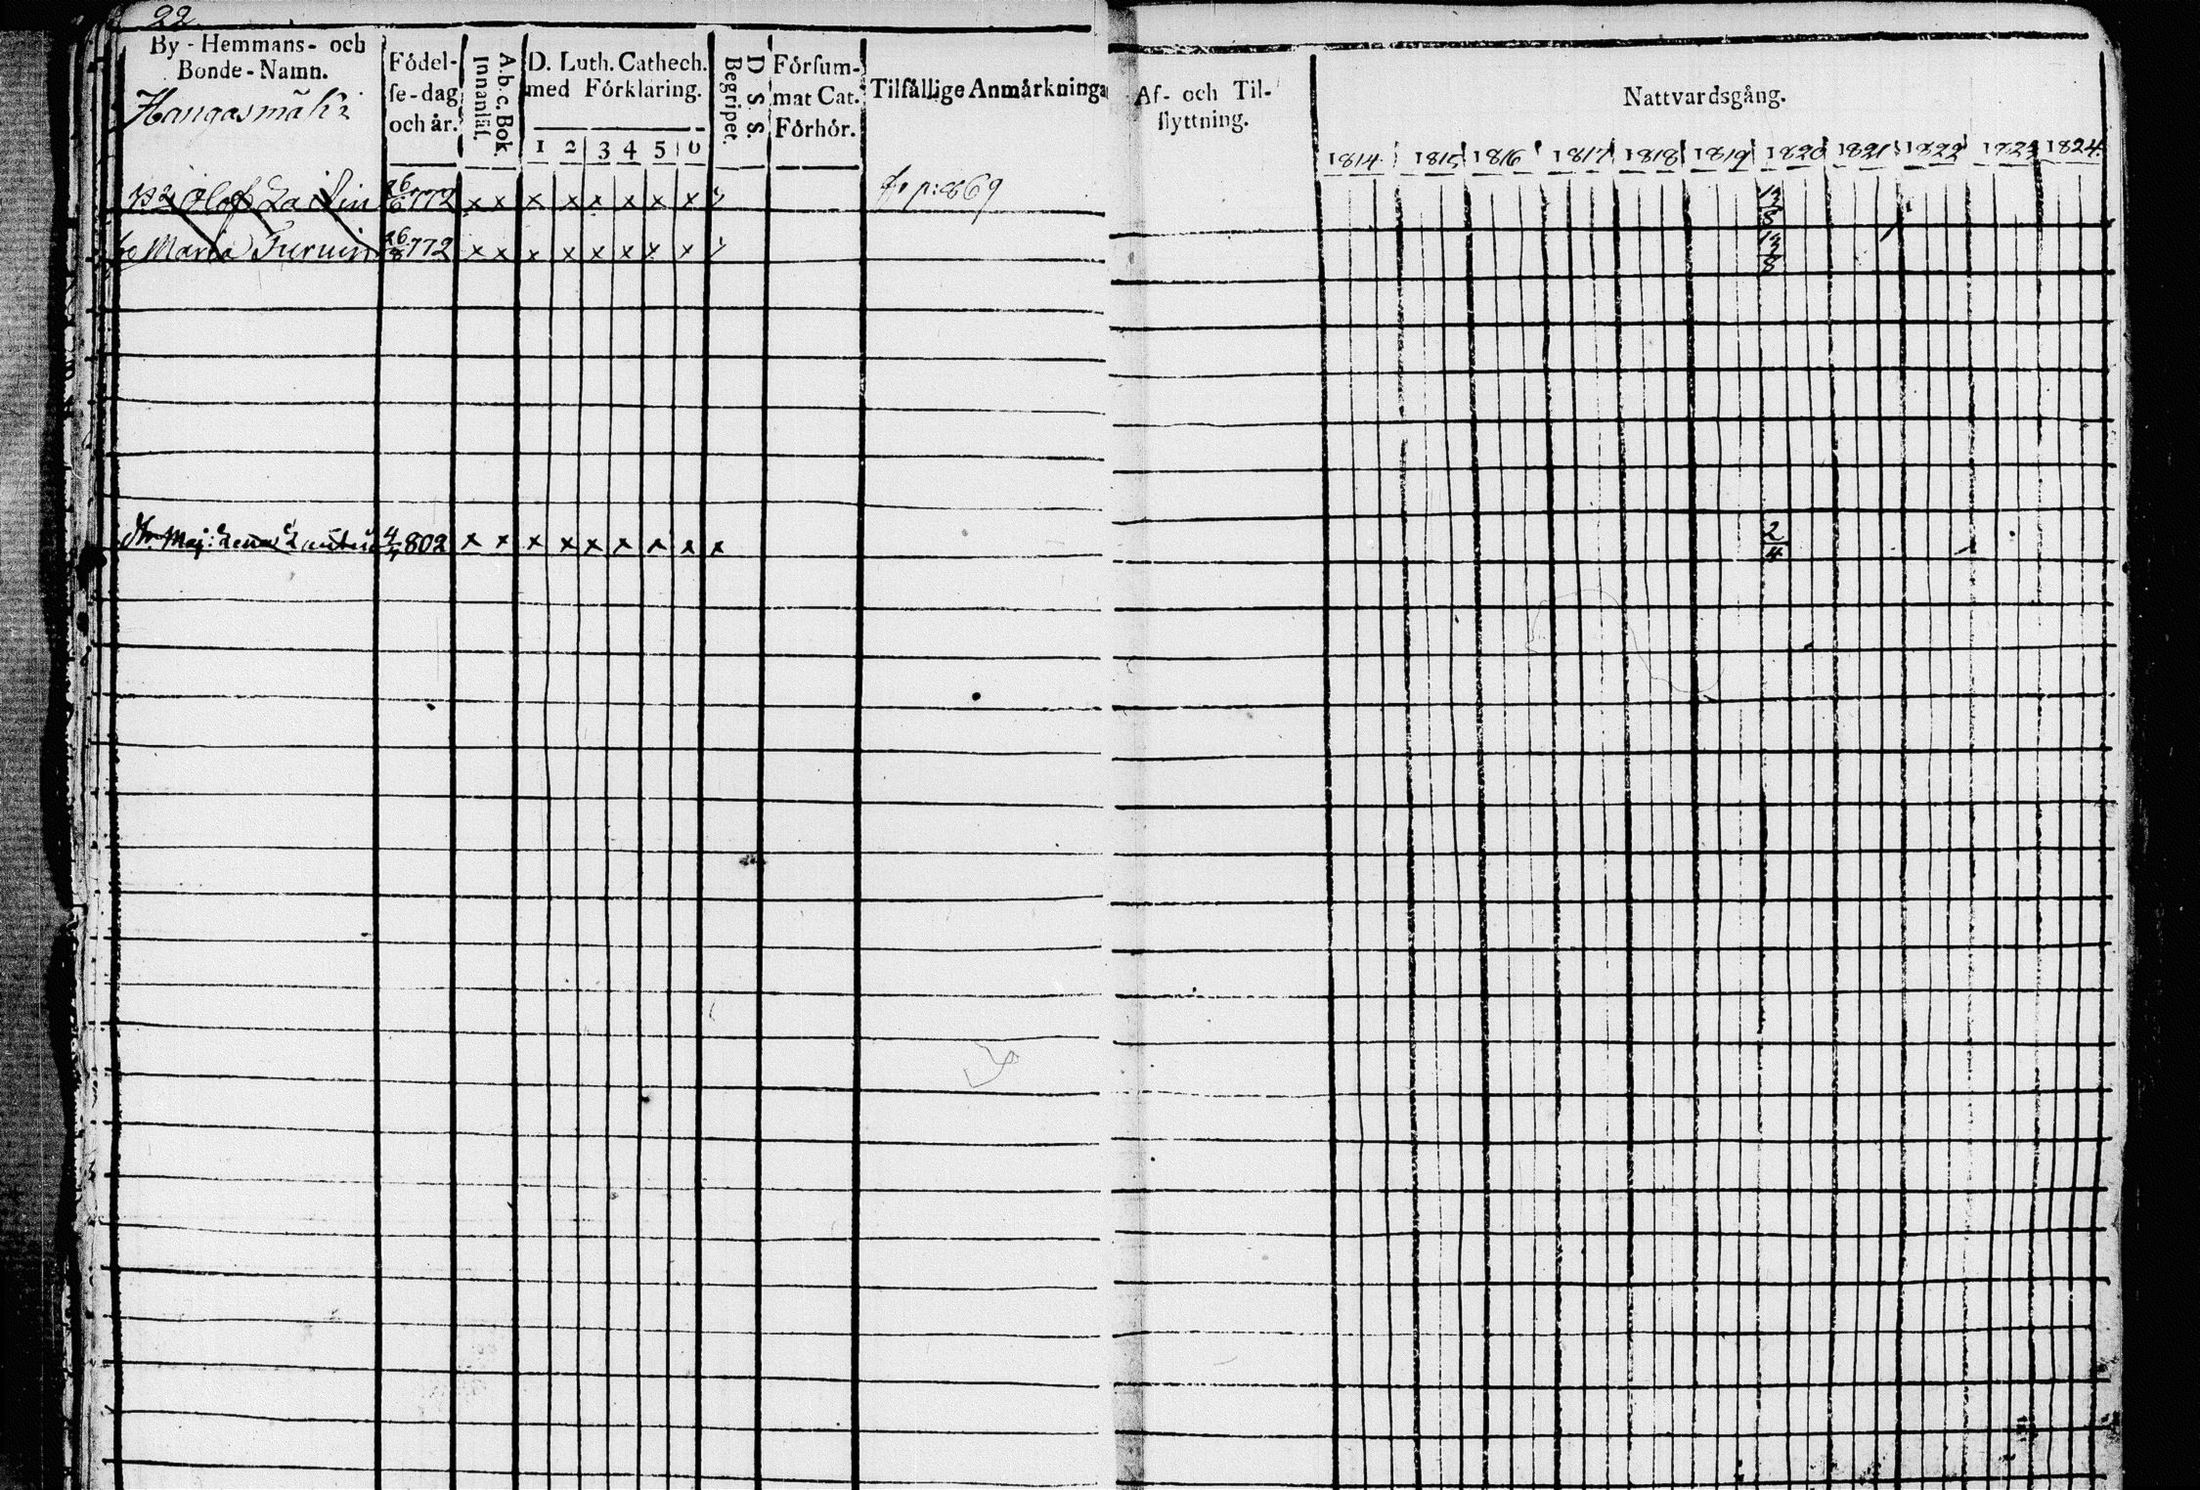 22
By - Hemmans- och
Bonde - Namn.
Hangasmäki
Födel-
se-dag
och år.
A.b.c. Bok.
Innanläs.
D. Luth. Cathech.
med Förklaring.
1 2 3 4 5 6
D. S. S.
Begripet.
Försum-
mat Cat.
Förhör.
Tilfällige Anmärkninga
Af- och Til-
flyttning.
Nattvardsgång.
1814 1815 1816 1817 1818 1819 1820 1821 1822 1823 1824
Olof 26/6 772 x x x x x x x x p: 869 12/8
Maria Turuin 26/8 772 x x x x x x x x 12/8
Maj: Lena 802 x x x x x x x x x 2/4